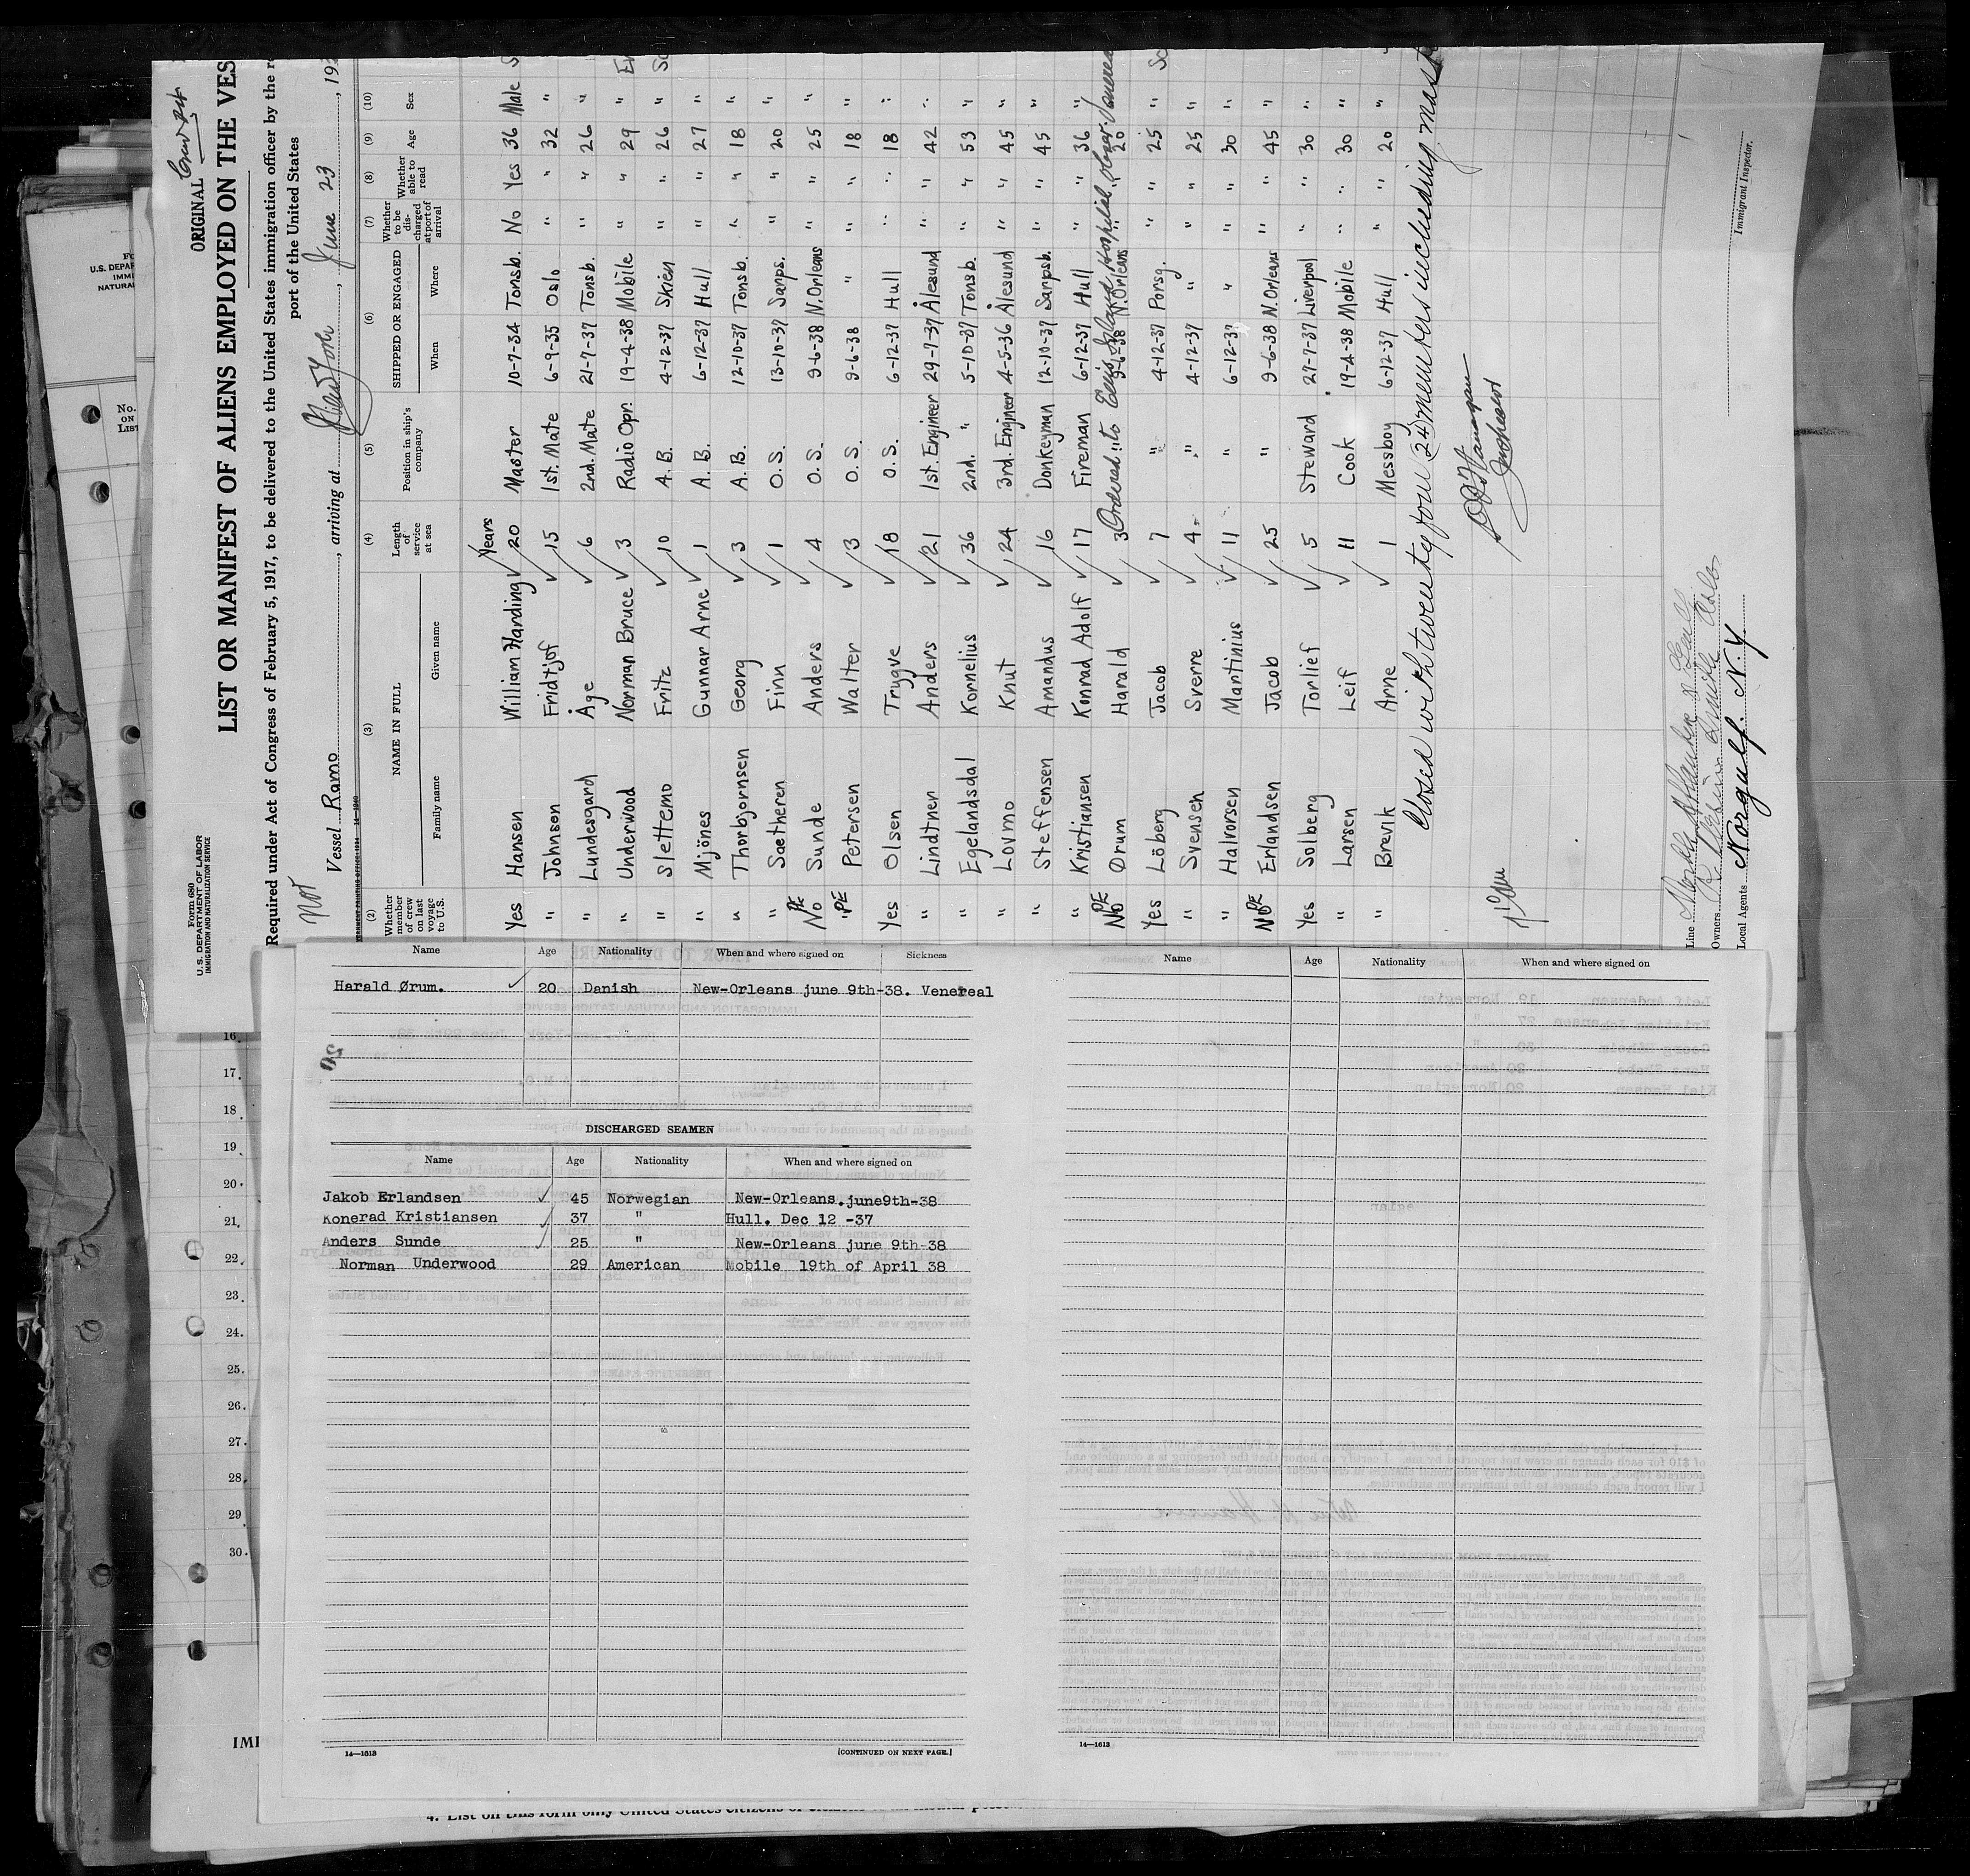 ORIGINAL
Form 680
U.S. DEPARTMENT OF LABOR
IMMIGRATION AND NATURALIZATION SERVICE
LIST OR MANIFEST OF ALIENS EMPLOYED ON THE VES
Required under Act of Congress of February 5, 1917, to be delivered to the United States immigration officer by the
port of the United States
Vessel Ramo, arriving at New York, June 23, 193
(2) (3) (4) (5) (6) (7) (8) (9) (10)
Whether member of crew on last voyage to U.S. NAME IN FULL Family name Given name Length of service at sea Position in ship's company SHIPPED OR ENGAGED When Where Whether to be discharged at port of arrival Whether able to read Age Sex
Years
Yes Hansen William Harding ✓ 20 Master 10-7-34 Tonsb. No Yes 36 Male
" Johnsen Fridtjof ✓ 15 1st. Mate 6-9-35 Oslo " " 32 "
" Lundesgard Åge ✓ 6 2nd. Mate 21-7-37 Tonsb. " " 26 "
" Underwood Norman Bruce ✓ 3 Radio Opr. 19-4-38 Mobile " " 29 "
" Slettemo Fritz ✓ 10 A. B. 4-12-37 Skien " " 26 "
" Mjönes Gunnar Arne ✓ 1 A. B. 6-12-37 Hull " " 27 "
" Thorbjornsen Georg ✓ 3 A. B. 12-10-37 Tonsb. " " 18 "
" Saetheren Finn ✓ 1 O. S. 13-10-37 Sarps. " " 20 "
No PE Sunde Anders ✓ 4 O. S. 9-6-38 N.Orleans " " 25 "
" PE Petersen Walter ✓ 3 O. S. 9-6-38 " " " 18 "
Yes Olsen Trygve ✓ 18 O. S. 6-12-37 Hull " " 18 "
" Lindtner Anders ✓ 21 1st. Engineer 29-7-37 Ålesund " " 42 "
" Egelandsdal Kornelius ✓ 36 2nd. " 5-10-37 Tonsb. " " 53 "
" Lovmo Knut ✓ 24 3rd. Engineer 4-5-36 Ålesund " " 45 "
" Steffensen Amandus ✓ 16 Donkeyman 12-10-37 Sarpsb. " " 45 "
" Kristiansen Konrad Adolf ✓ 17 Fireman 6-12-37 Hull " " 36 "
Ordered to Ellis Island Hospital
No PE Ørum Harald ✓ 3 " 9-6-38 N.Orleans " " 20
Yes Löberg Jacob ✓ 7 " 4-12-37 Porsg. " " 25 "
" Svensen Sverre ✓ 4 " 4-12-37 " " " 25 "
" Halvorsen Martinius ✓ 11 " 6-12-37 " " " 30 "
No PE Erlandsen Jacob ✓ 25 " 9-6-38 N.Orleans " " 45 "
Yes Solberg Torlief ✓ 5 Steward 27-7-37 Liverpool " " 30 "
" Larsen Leif ✓ 11 Cook 19-4-38 Mobile " " 30 "
" Brevik Arne ✓ 1 Messboy 6-12-37 Hull " " 20 "
Closed with twenty four (24) members including mast
Inspector
Line
Owners
Local Agents Norgulf. N.Y
Immigrant Inspector.
Name Age Nationality When and where signed on Sickness
Harald Ørum. ✓ 20 Danish New-Orleans june 9th-38. Venereal
DISCHARGED SEAMEN
Name Age Nationality When and where signed on
Jakob Erlandsen ✓ 45 Norwegian New-Orleans.june9th-38
Konerad Kristiansen ✓ 37 " Hull. Dec 12 -37
Anders Sunde ✓ 25 " New-Orleans june 9th-38
Norman Underwood 29 American Mobile 19th of April 38
14—1613 [CONTINUED ON NEXT PAGE.]
Name Age Nationality When and where signed on
14—1613
16.
17.
18.
19.
20.
21.
22.
23.
24.
25.
26.
27.
28.
29
30.
IMI
4. List on this form only United States citizens